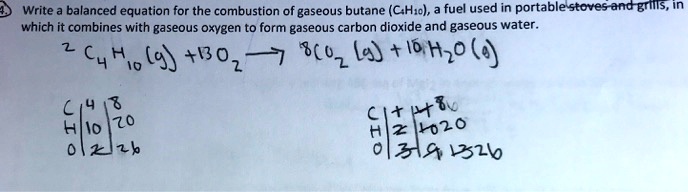 Write a balanced equation for the combustion of gaseous butane (C₄H₁₀), a fuel used in portable stoves and grills, in
which it combines with gaseous oxygen to form gaseous carbon dioxide and gaseous water.
2 C₄H₁₀ (g) + 13 O₂ → 8 CO₂ (g) + 10 H₂O (g)
C 4 8
H 10 20
O 2 26
C 1 8
H 2 10 20
O 3 9 13 26